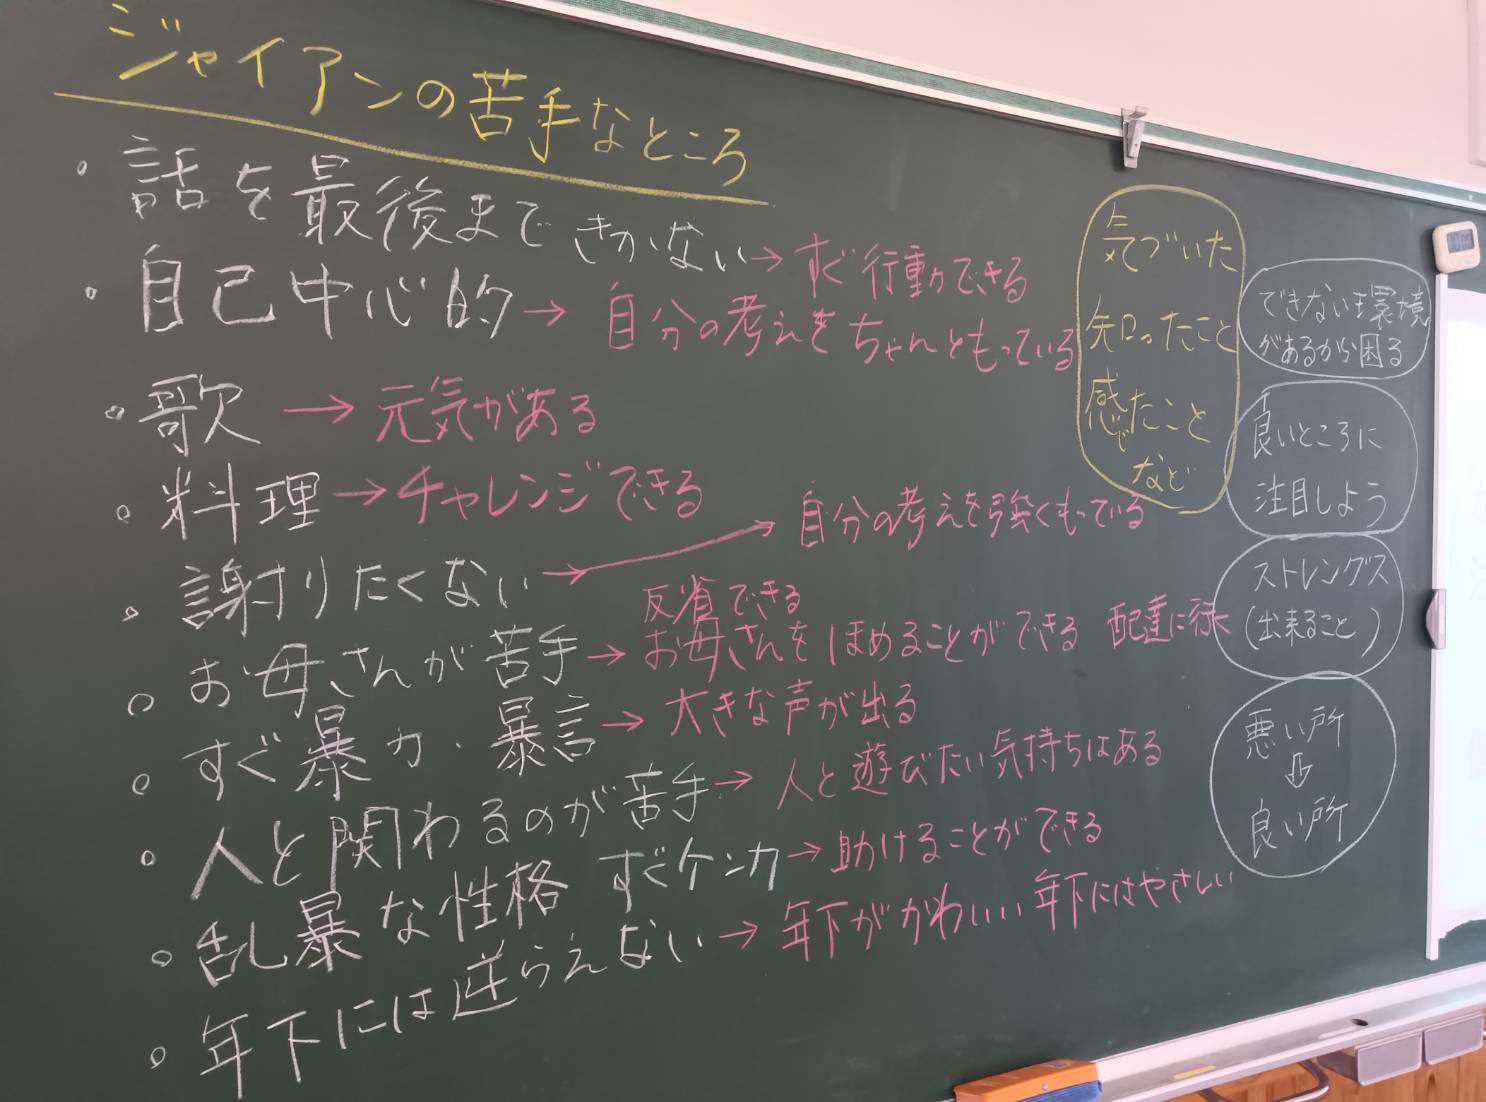 ジャイアンの苦手なところ
・話を最後まできかない→すぐ行動できる
・自己中心的→自分の考えをちゃんともっている
・歌→元気がある
・料理→チャレンジできる
・謝りたくない→自分の考えを強くもっている
反省できる
・お母さんが苦手→お母さんをほめることができる 配達に行く
・すぐ暴力・暴言→大きな声が出る
・人と関わるのが苦手→人と遊びたい気持ちはある
・乱暴な性格 すぐケンカ→助けることができる
・年下には逆らえない→年下がかわいい 年下にはやさしい
気づいた
知ったこと
感じたこと
など
できない環境
があるから困る
良いところに
注目しよう
ストレングス
(出来ること)
悪い所
⇩
良い所